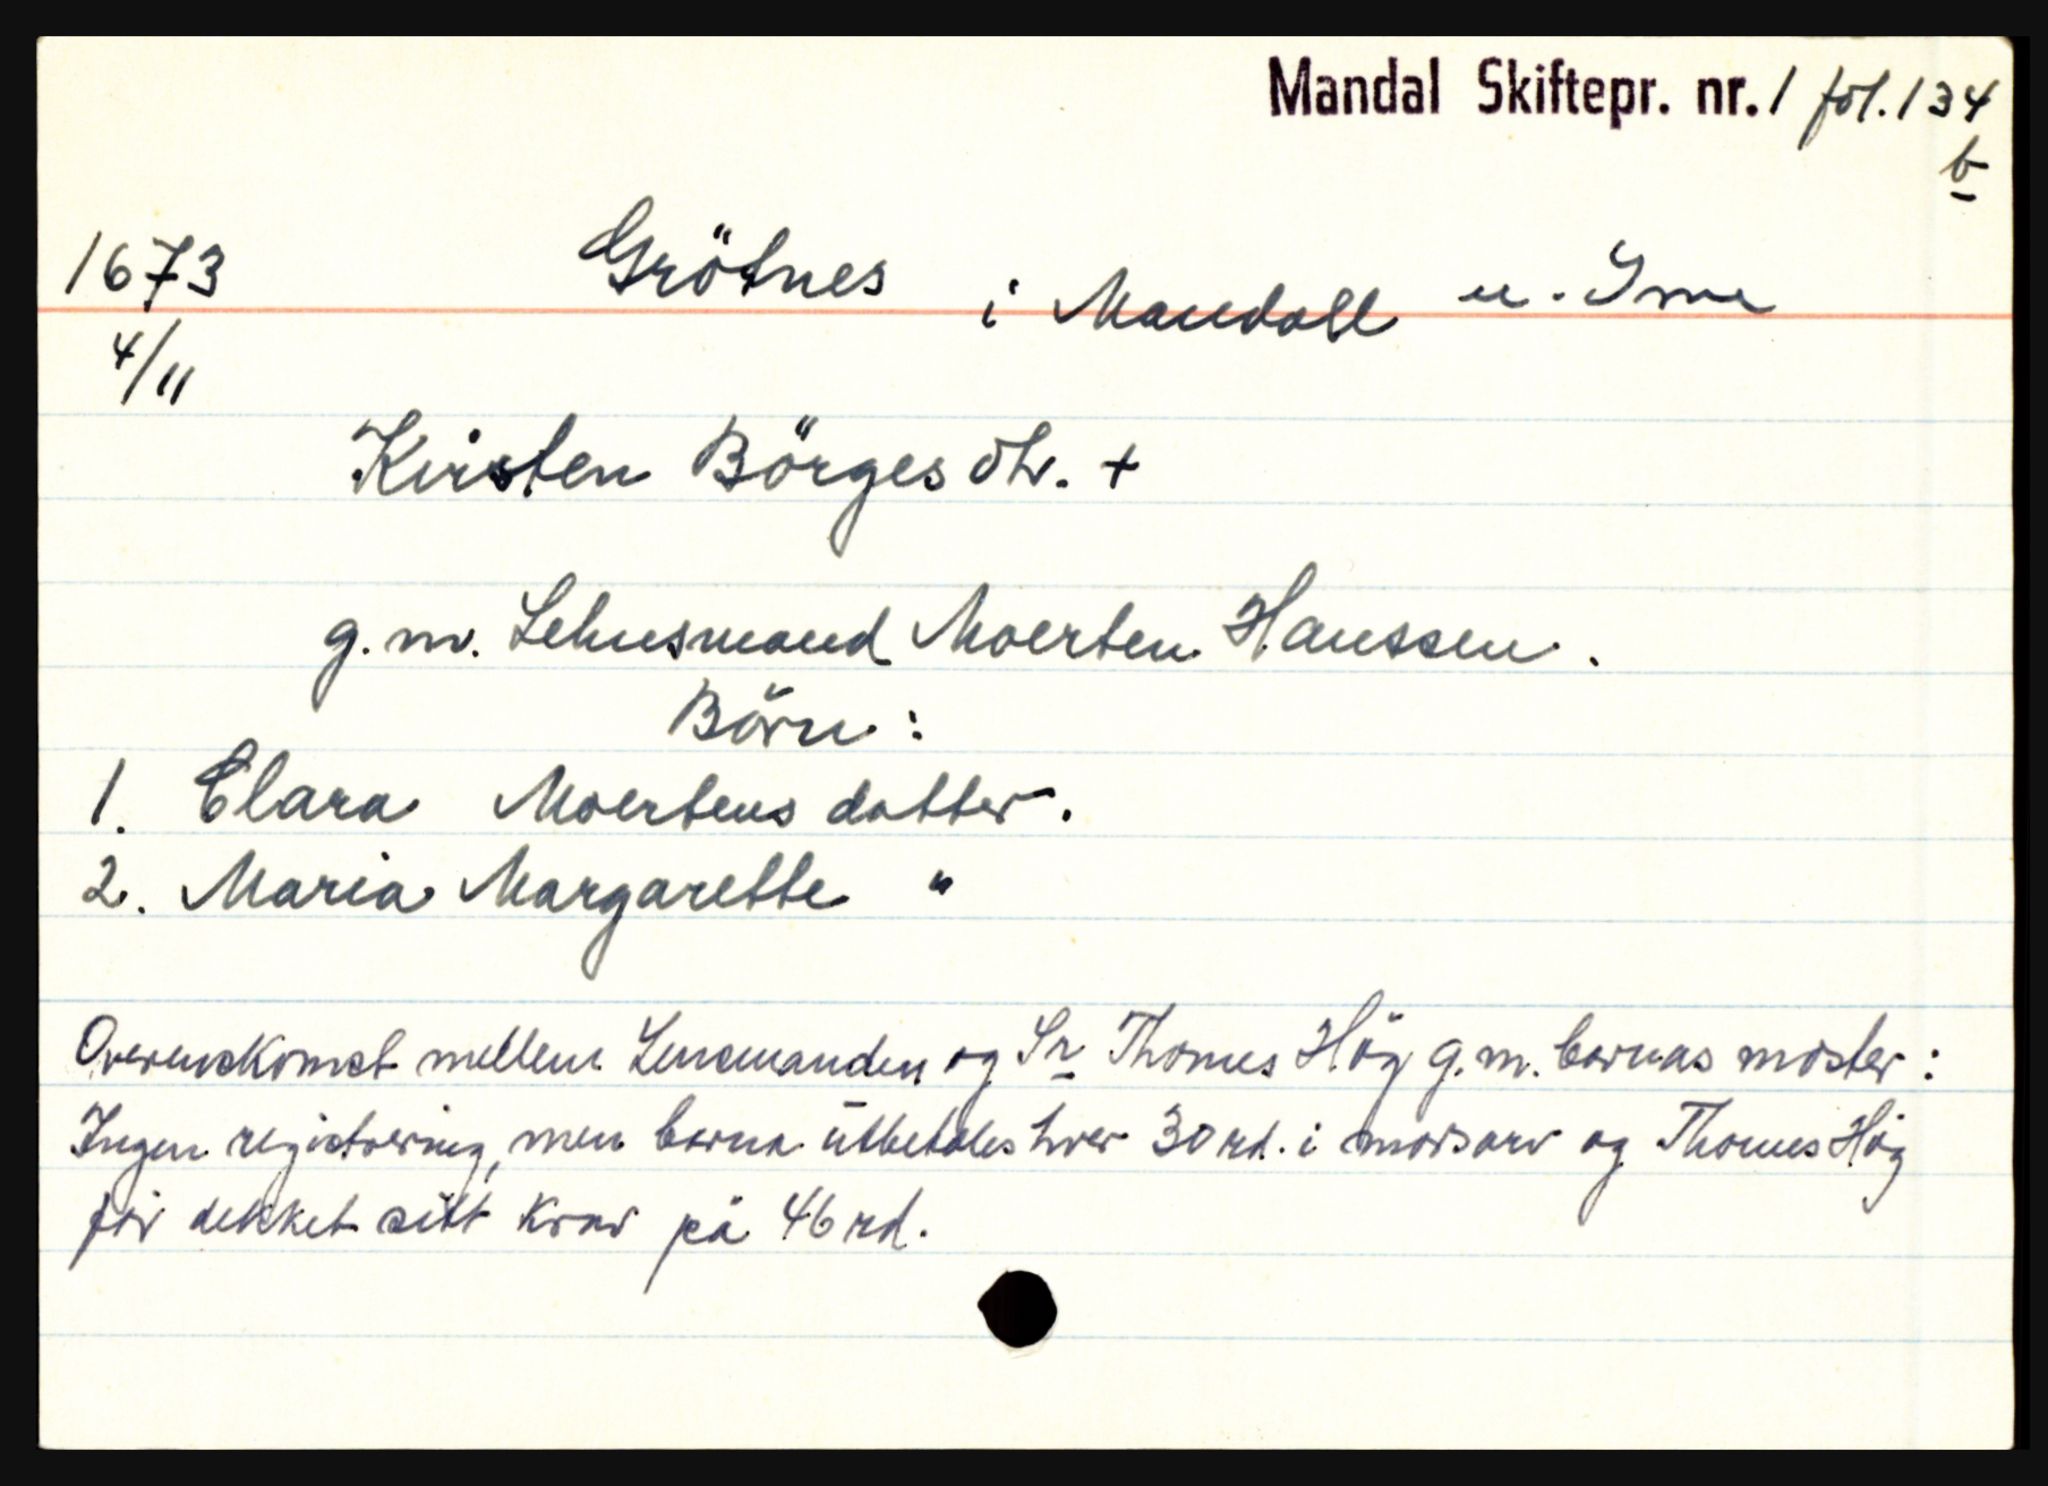 Mandal Skiftepr. nr. 1 fol. 134
b
1673 Grötnes i Mandall u. Ime
4/11
Kirsten Börgesdtr. +
g. m. Lehnsmand Moerten Hanssen.
Börn:
1. Clara Moertens datter.
2. Maria Margarette "
Overenskomst mellem Lensmanden og Sr Thomes Hög g. m. barnas moster:
Ingen registrering, men barna utbetales hver 30 rd. i morsarv og Thomes Hög
får dekket sitt krav på 46 rd.